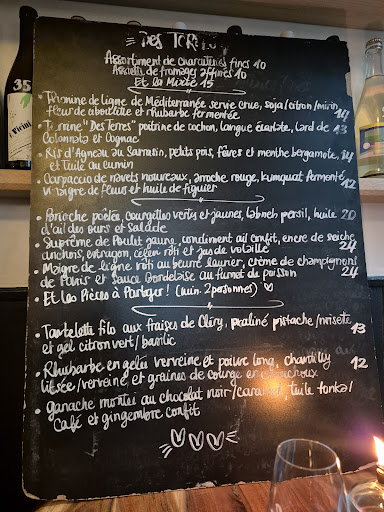 DES TERRES
Assortiment de charcuteries fines 10
Assiette de fromages affinés 10
Et la Mixte 15
• Thonine de ligne de Méditerranée servie crue, soja/citron/mirin,
fleur de ciboulette et rhubarbe fermentée 14
• Terrine "Des Terres" poitrine de cochon, langue écarlate, lard de 13
Colonnata et Cognac
• Ris d'Agneau au Sarrasin, petits pois, fèves et menthe bergamote, 14
et tuile au cumin
• Carpaccio de navets nouveaux, arroche rouge, kumquat fermenté 12
vinaigre de fleurs et huile de figuier
• poêlée, courgettes vertes et jaunes, labneh persil, huile 20
d'ail des ours et salade
• Suprême de Poulet jaune, condiment ail confit, encre de seiche
anchois, estragon, céleri rôti et jus de volaille 24
• Maigre de ligne rôti au beurre laurier, crème de champignons
de Paris et sauce Bordelaise au fumet de poisson 24
• Et les Pièces à Partager! (min. 2 personnes)
• Tartelette filo aux fraises de Cléry, praliné pistache/noisette 13
et gel citron vert/basilic
• Rhubarbe en gelée verveine et poivre long, chantilly 12
litsée/verveine et graines de courge en
• ganache montée au chocolat noir/caramel, tuile tonka/
café et gingembre confit
35